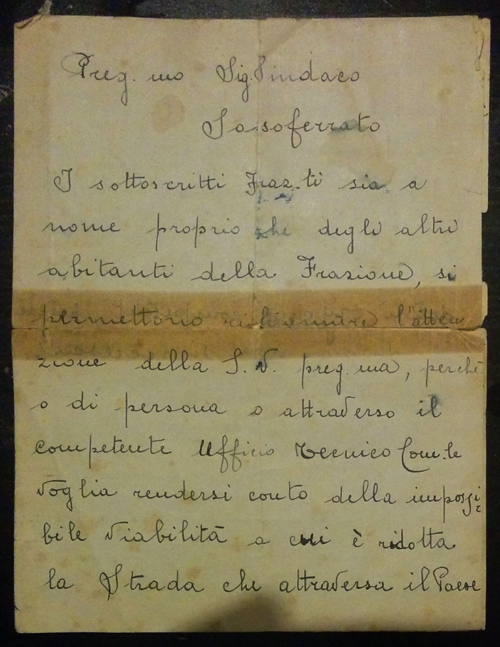 Preg. mo Sig. Sindaco
Sassoferrato
I sottoscritti Fraz.ti sia a
nome proprio che degli altri
abitanti della Frazione, si
permettono richiamare l'atten
zione della S. V. preg. ma, perchè
o di persona o attraverso il
competente Ufficio Tecnico Com.le
voglia rendersi conto della impossi=
bile viabilità a cui è ridotta
la Strada che attraversa il Paese